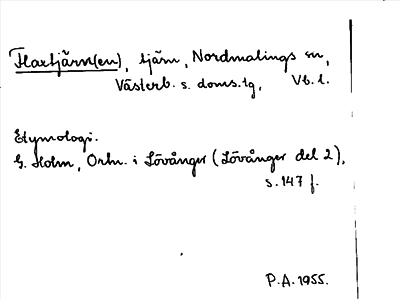 Flaxtjärn(en), tjärn, Nordmalings sn,
Västerb. s. doms.tg, Vb. l.
Etymologi.
G. Holm, Ortn. i Lövånger (Lövånger del 2),
s. 147 f.
P.A. 1955.